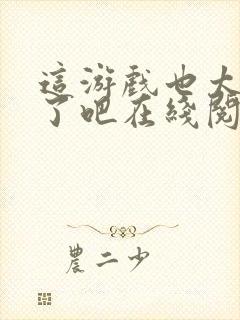 這游戲也太
了吧在綫閱
農二少